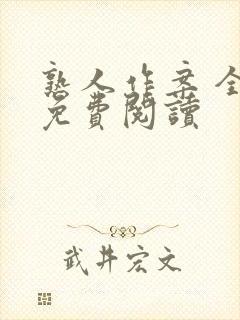 熟人作案全
免費閱讀
武井宏文